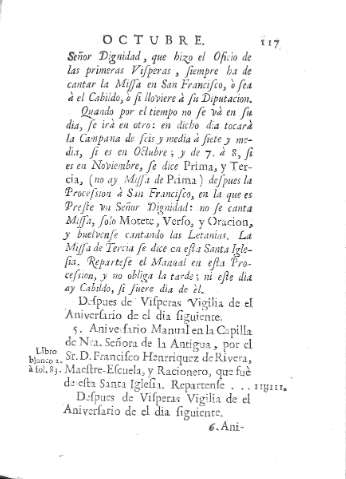 OCTUBRE. 117
Señor Dignidad, que hizo el Oficio de
las primeras Visperas, siempre ha de
cantar la Missa en San Francisco, ò sea
à el Cabildo, ò si lloviere à su Diputacion.
Quando por el tiempo no se và en su
dia, se irà en otro: en dicho dia tocarà
la Campana de seis y media à siete y me-
dia, si es en Octubre; y de 7. à 8, si
es en Noviembre, se dice Prima, y Ter-
cia, (no ay Missa de Prima) despues la
Procession à San Francisco, en la que es
Preste un Señor Dignidad: no se canta
Missa, solo Motete, Verso, y Oracion,
y buelvense cantando las Letanias. La
Missa de Tercia se dice en esta Santa Igle-
sia. Repartese el Manual en esta Pro-
cession, y no obliga la tarde; ni este dia
ay Cabildo, si fuere dia de èl.
Despues de Visperas Vigilia de el
Aniversario de el dia siguiente.
5. Aniversario Manual en la Capilla
de Nra. Señora de la Antigua, por el
Libro
blanco 2.
à fol. 83.
Sr. D. Francisco Henrriquez de Rivera,
Maestre-Escuela, y Racionero, que fuè
de esta Santa Iglesia. Repartense . . .
Despues de Visperas Vigilia de el
Aniversario de el dia siguiente.
6. Ani-